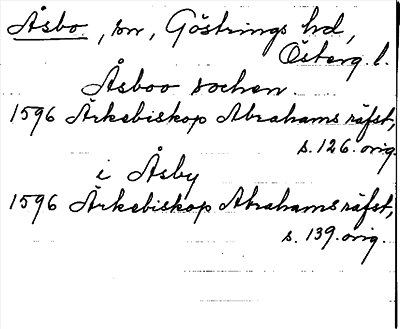 Åsbo, sn, Göstrings hd,
Österg. l.
Åsboo sochen
1596 Ärkebiskop Abrahams räfst,
s. 126. orig.
i Åsby
1596 Ärkebiskop Abrahams räfst,
s. 139. orig.